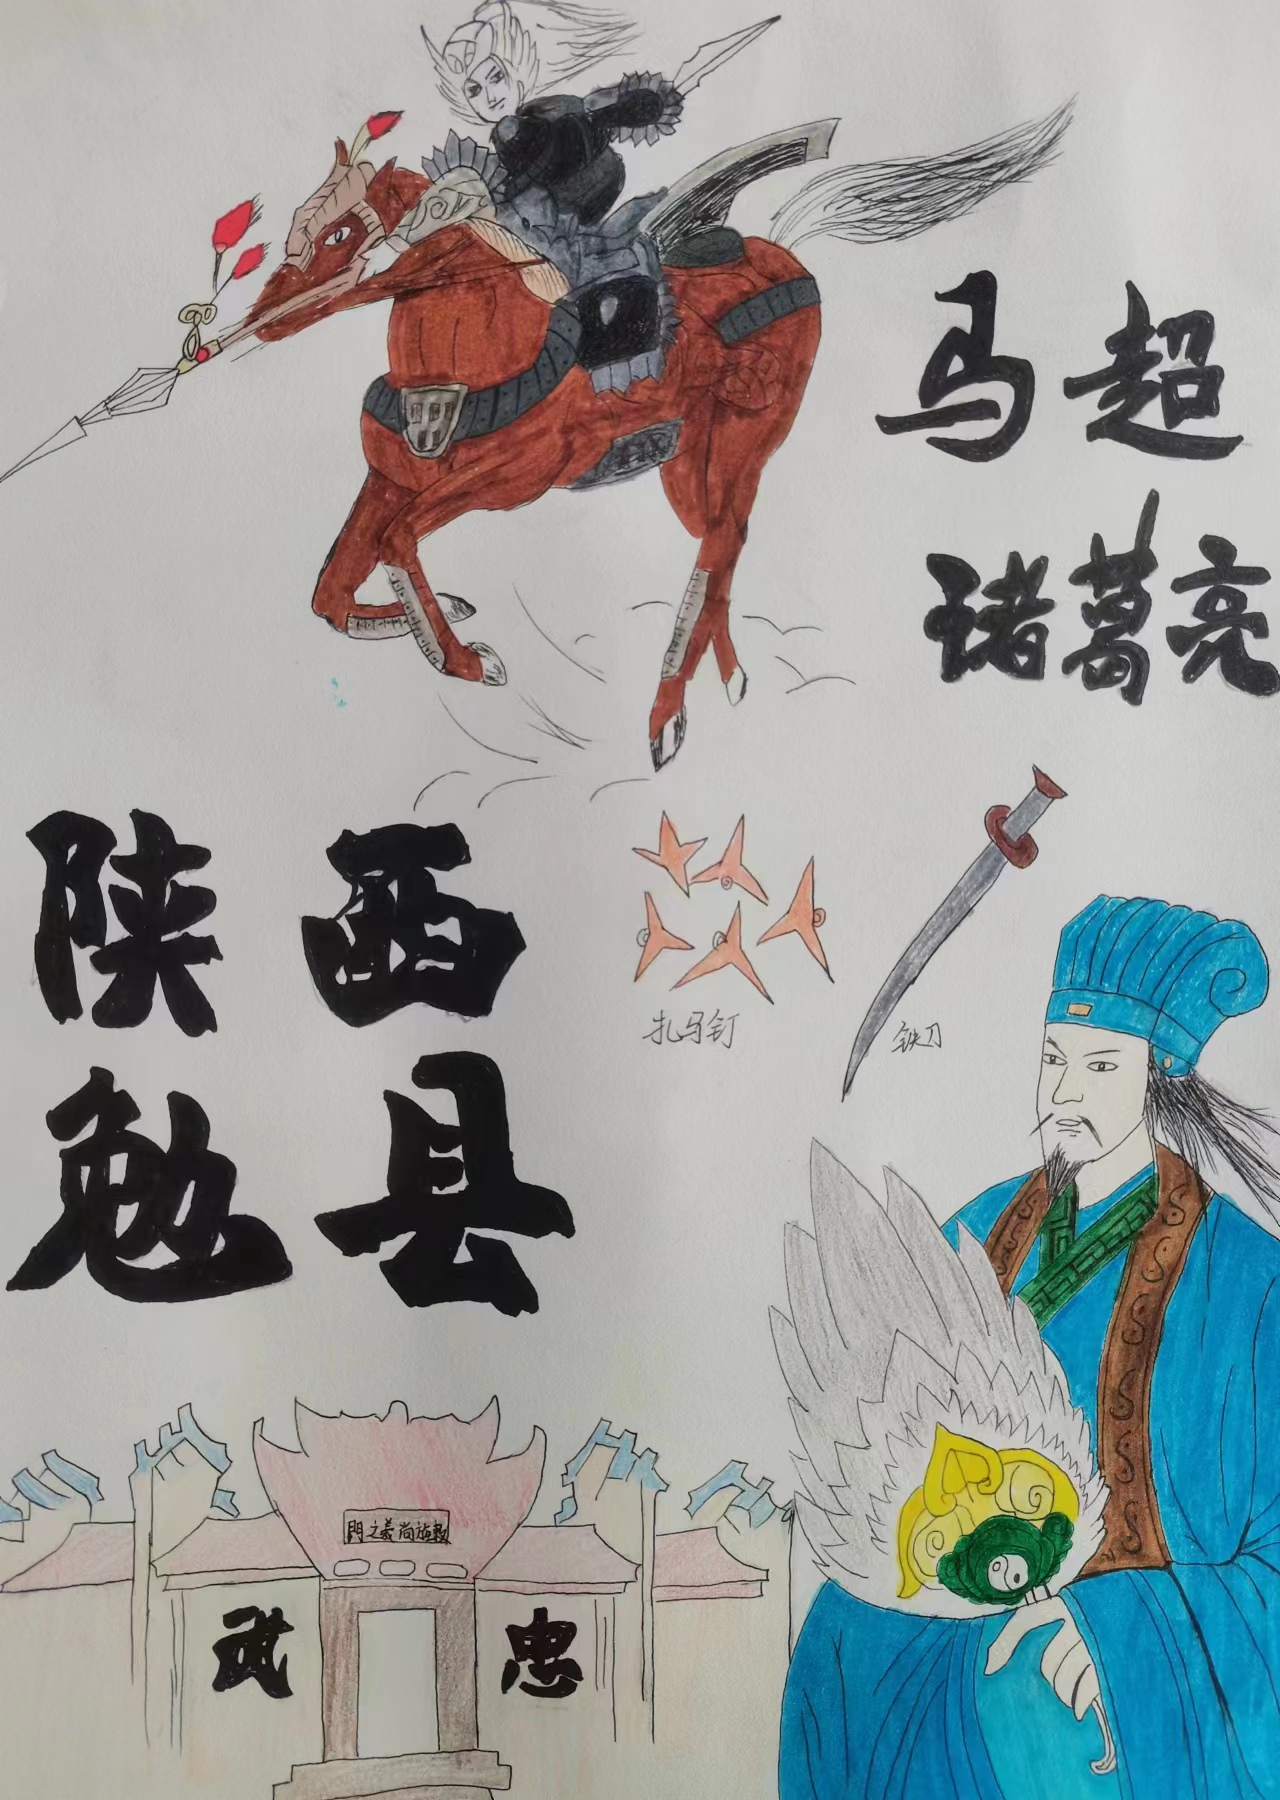 马超
诸葛亮
陕西
勉县
扎马钉
铁刀
尚義之門
忠武